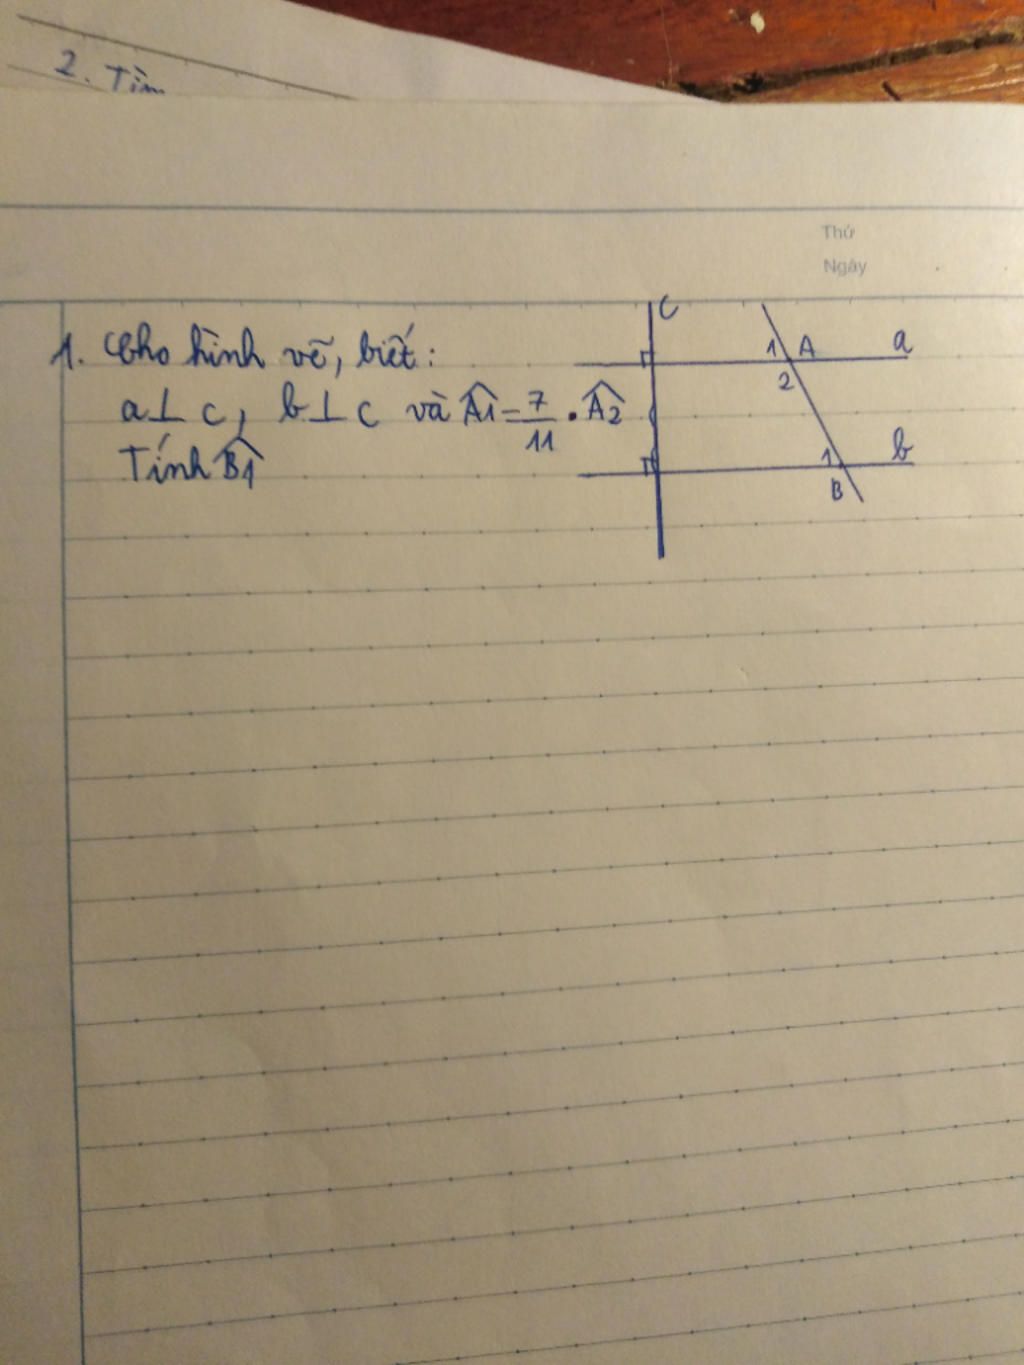 2. Tìm
Thứ
Ngày
1. Cho hình vẽ, biết:
a⊥c, b⊥c và Â1 = 7/11 . Â2
Tính B̂1
c
1 A a
2
1 b
B